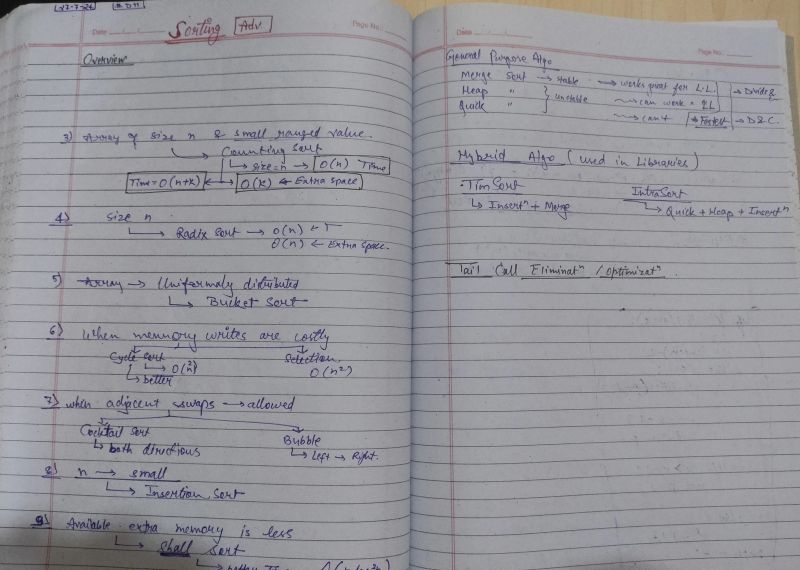 27-7-24
Date
Sorting Adv.
Page No.
Overview
3) Array of size n & small ranged value.
Counting Sort
size=n → O(n) Time
Time=O(n+k) ← O(k) ← Extra space
4) size n
Radix Sort → O(n) ← T
O(n) ← Extra space.
5) Array → Uniformaly distributed
Bucket Sort
6) When memmory writes are costly
Cycle Sort Selection
→ O(n²) O(n²)
→ better
7) when adjacent swaps → allowed
Cocktail sort Bubble
↳ both directions ↳ Left → Right.
8) n → small
Insertion Sort
9) Available extra memory is less
Shall Sort
Date
Page No.
General Purpose Algo
Merge Sort → stable → works great for L.L. → Divide &
Heap " } unstable → can work
Quick " → can't → Fastest → D & C.
Hybrid Algo (used in Libraries)
Tim Sort IntraSort
↳ Insertⁿ + Merge → Quick + Heap + Insertⁿ
Tail Call Eliminatⁿ / Optimizatⁿ.